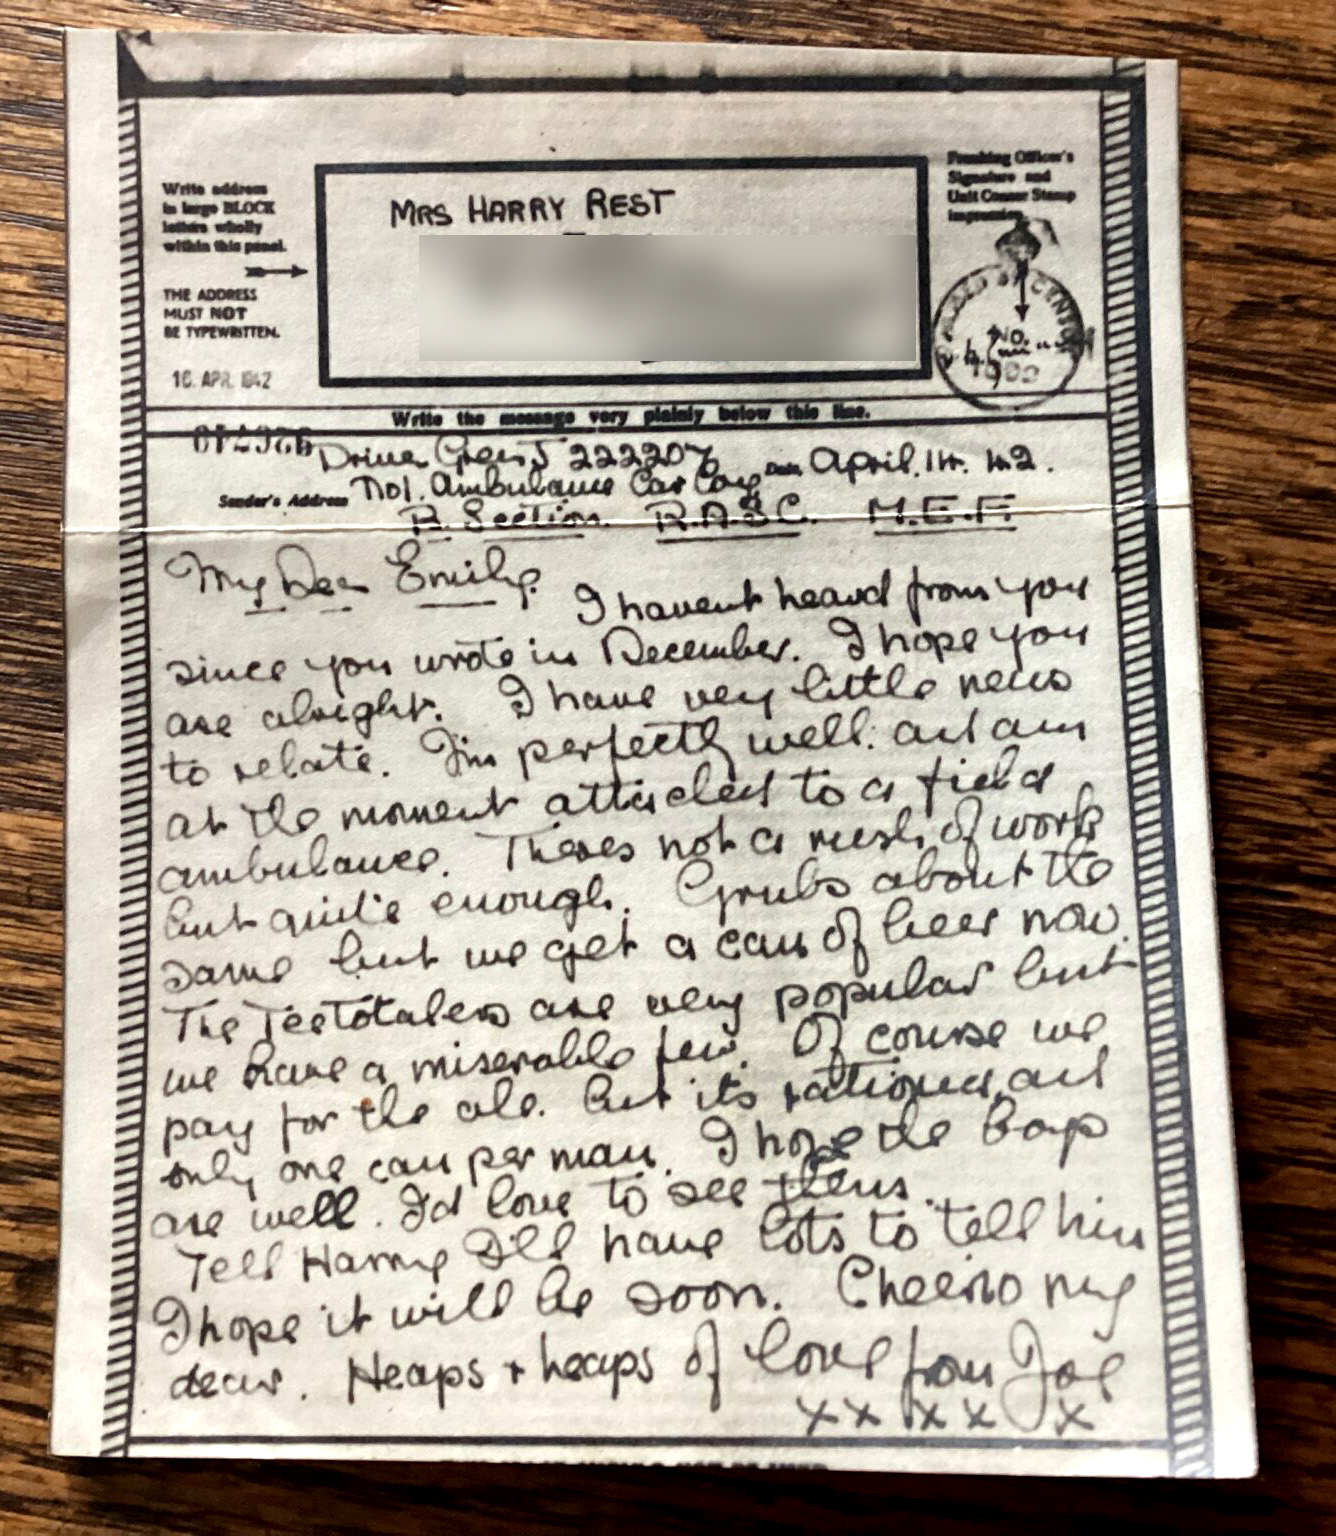 Write address
in large BLOCK
letters wholly
within this panel.
THE ADDRESS
MUST NOT
BE TYPEWRITTEN.
16. APR. 1942
MRS HARRY REST
Franking Officer's
Signature and
Unit Censor Stamp
impression
PASSED BY CENSOR
No.
Write the message very plainly below this line.
Driver J 222207
Date April. 14. 42.
Sender's Address No1. Ambulance Car Coy
B. Section. R.A.S.C. M.E.F.
My Dear Emily.
I havent heard from you
since you wrote in December. I hope you
are alright. I have very little news
to relate. I'm perfectly well. and am
at the moment attached to a field
ambulance. Theres not a rush of work
but quite enough. Grubs about the
same but we get a can of beer now.
The Teetotalers are very popular but
we have a miserable few. Of course we
pay for the ale. but its rationed, and
only one can per man. I hope the Boys
are well. I'd love to see them.
Tell Harry I'll have lots to tell him
I hope it will be soon. Cheerio my
dear. Heaps + heaps of love from Joe
x x x x x